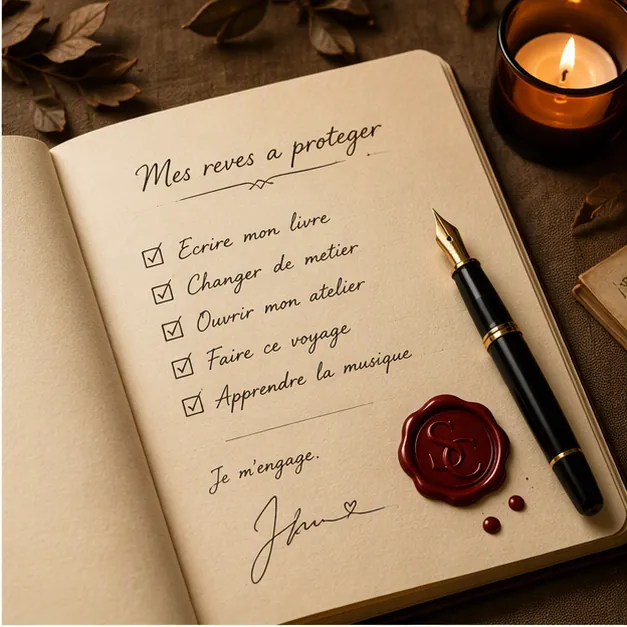 Mes reves a proteger
Ecrire mon livre
Changer de metier
Ouvrir mon atelier
Faire ce voyage
Apprendre la musique
Je m'engage.
SC